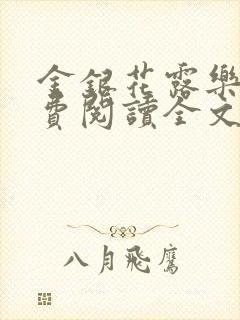 金銀花露樂
費閱讀全文
八月飛鷹